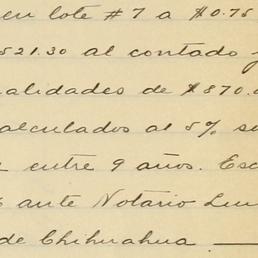 en lote #7 a $0.75
521.30 al contado y
alidades de $870.
alculados al 5% s
entre 9 años. Esc
ante Notario Lui
de Chihuahua.